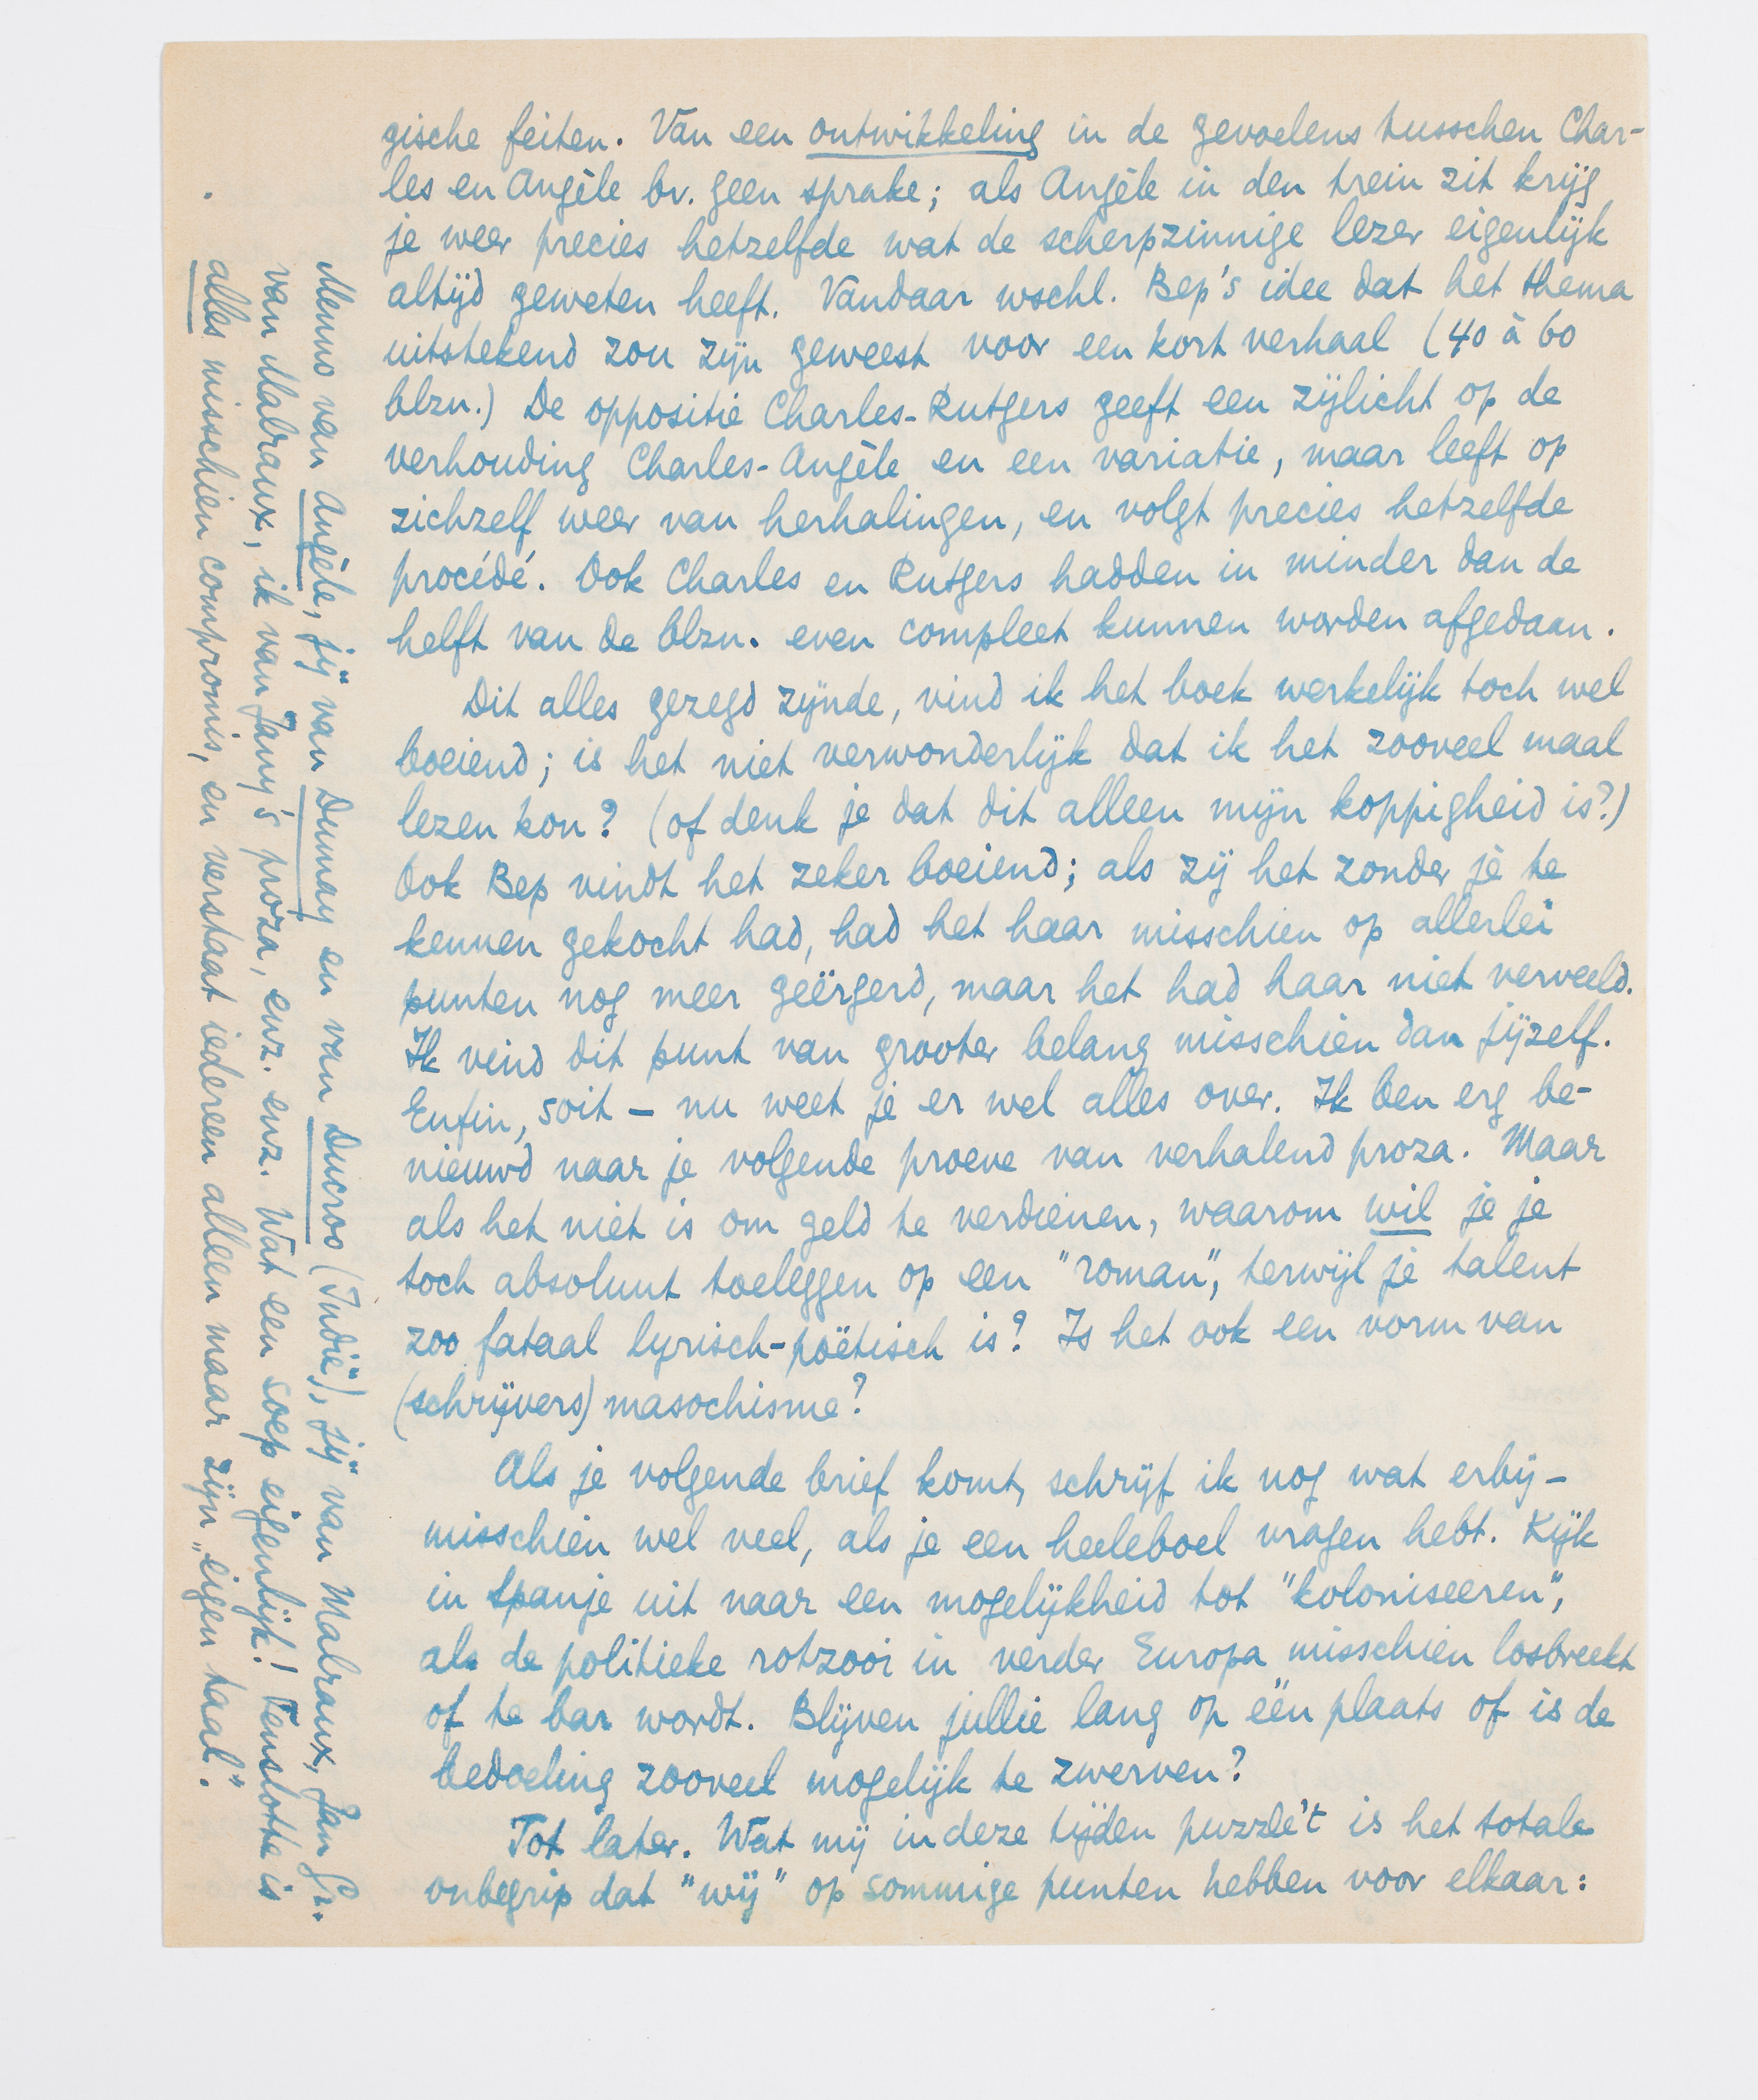 gische feiten. Van een ontwikkeling in de gevoelens tusschen Char-
les en Angèle bv. geen sprake; als Angèle in den trein zit krijg
je weer precies hetzelfde wat de scherpzinnige lezer eigenlijk
altijd geweten heeft. Vandaar wschl. Bep's idee dat het thema
uitstekend zou zijn geweest voor een kort verhaal (40 à 60
blzn.) De oppositie Charles-Rutgers geeft een zijlicht op de
verhouding Charles-Angèle en een variatie, maar leeft op
zichzelf weer van herhalingen, en volgt precies hetzelfde
procédé. Ook Charles en Rutgers hadden in minder dan de
helft van de blzn. even compleet kunnen worden afgedaan.
Dit alles gezegd zijnde, vind ik het boek werkelijk toch wel
boeiend; is het niet verwonderlijk dat ik het zooveel maal
lezen kon? (of denk je dat dit alleen mijn koppigheid is?)
Ook Bep vindt het zeker boeiend; als zij het zonder je te
kennen gekocht had, had het haar misschien op allerlei
punten nog meer geërgerd, maar het had haar niet verveeld.
Ik vind dit punt van grooter belang misschien dan jijzelf.
Enfin, soit – nu weet je er wel alles over. Ik ben erg be-
nieuwd naar je volgende proeve van verhalend proza. Maar
als het niet is om geld te verdienen, waarom wil je je
toch absoluut toeleggen op een "roman", terwijl je talent
zoo fataal lyrisch-poëtisch is? Is het ook een vorm van
(schrijvers) masochisme?
Als je volgende brief komt, schrijf ik nog wat erbij –
misschien wel veel, als je een heeleboel vragen hebt. Kijk
in Spanje uit naar een mogelijkheid tot "koloniseeren",
als de politieke rotzooi in verder Europa misschien losbreekt
of te bar wordt. Blijven jullie lang op één plaats of is de
bedoeling zooveel mogelijk te zwerven?
Tot later. Wat mij in deze tijden puzzle't is het totale
onbegrip dat "wij" op sommige punten hebben voor elkaar:
Menno van Angèle, jij van Dumay en van Ducroo (Indië), jij van Malraux, Jan Gr.
van Malraux, ik van Jany's proza, enz. enz. Wat een soep eigenlijk! Tenslotte is
alles misschien compromis, en verstaat iedereen alleen maar zijn „eigen taal".